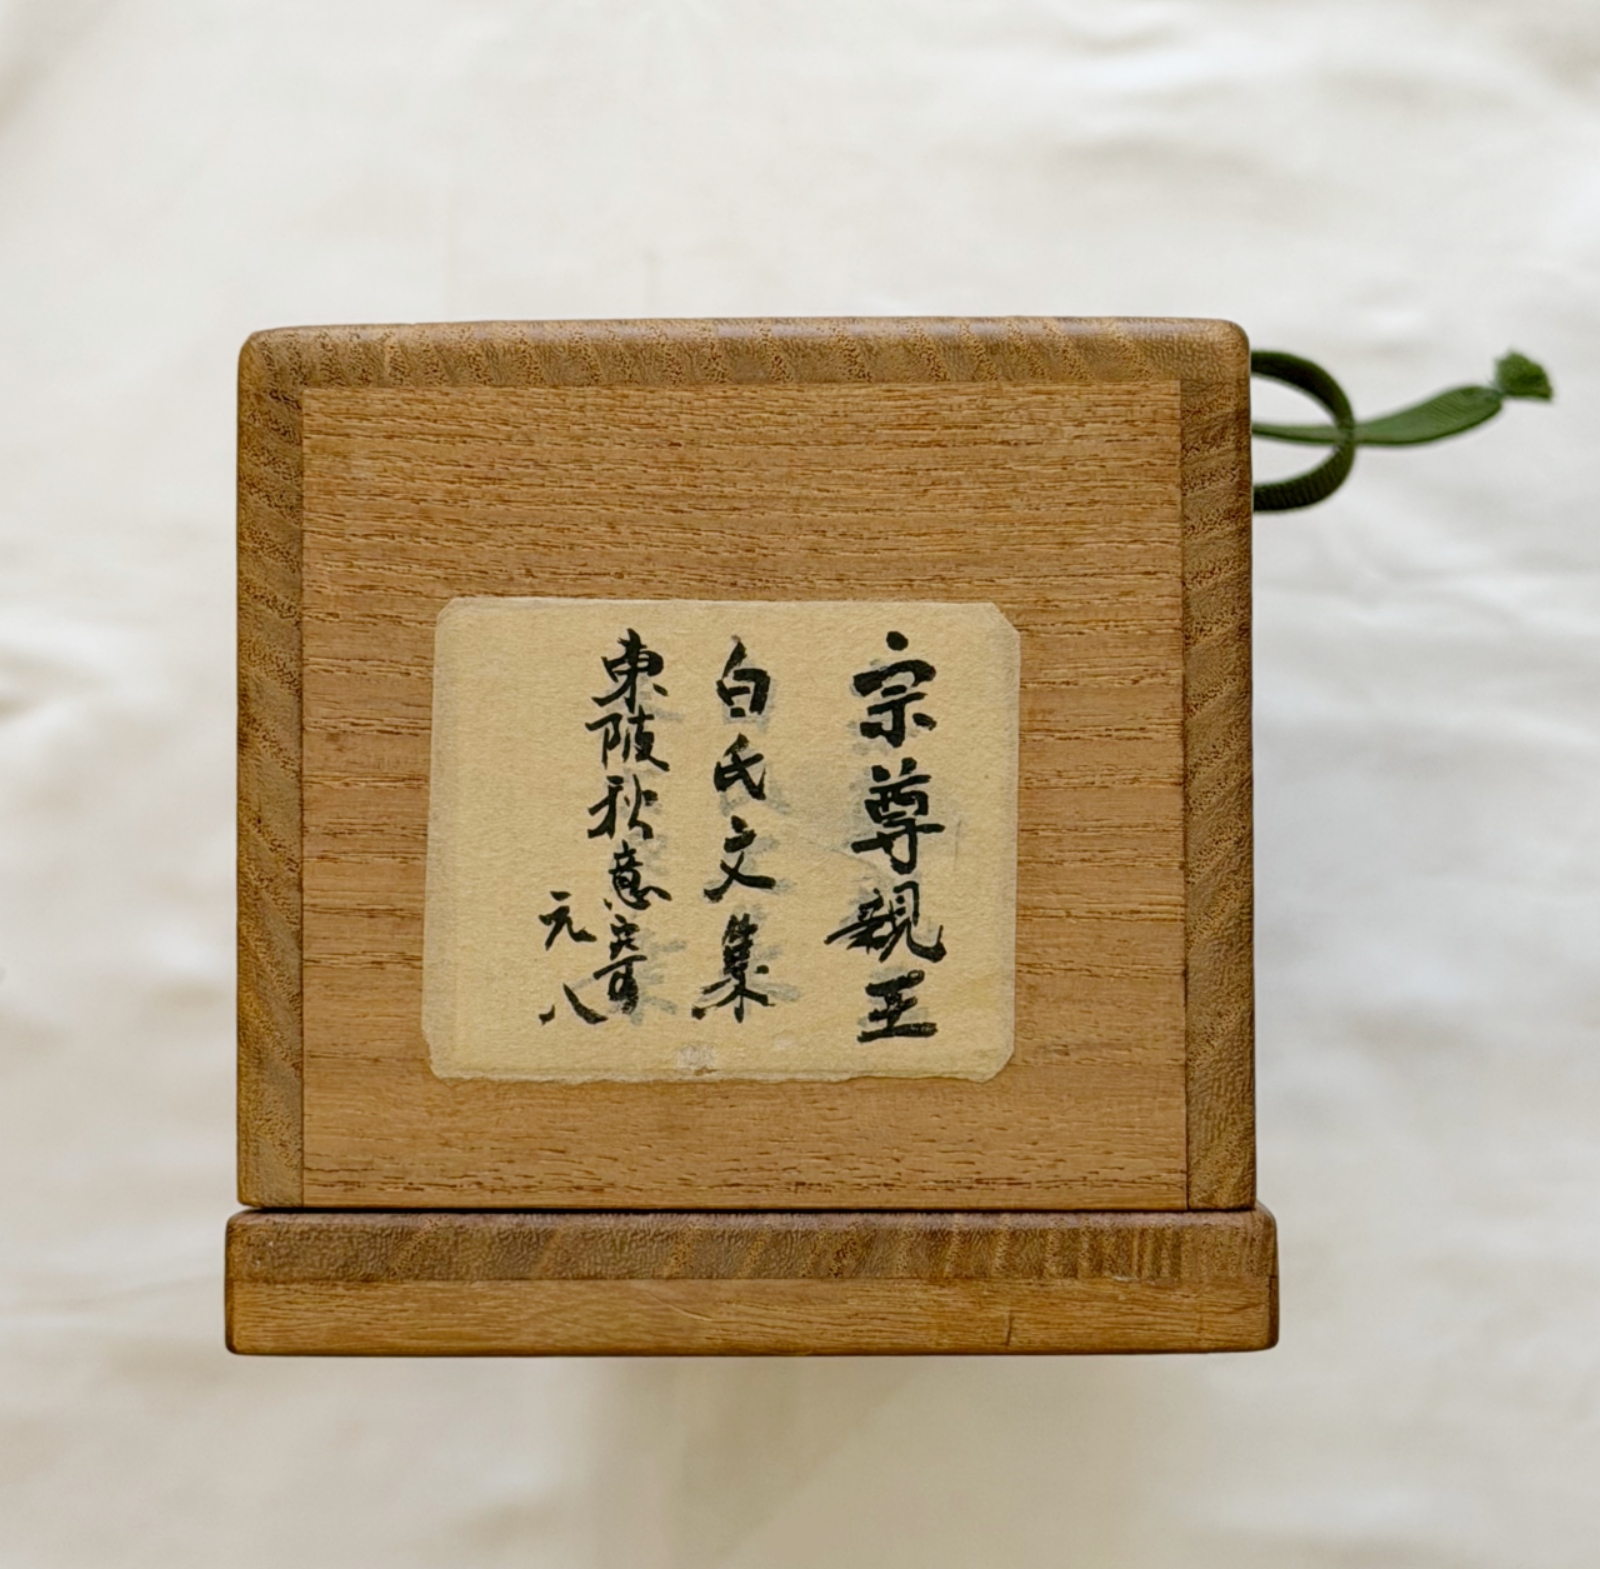 宗尊親王
白氏文集
東陂秋意寄
元八